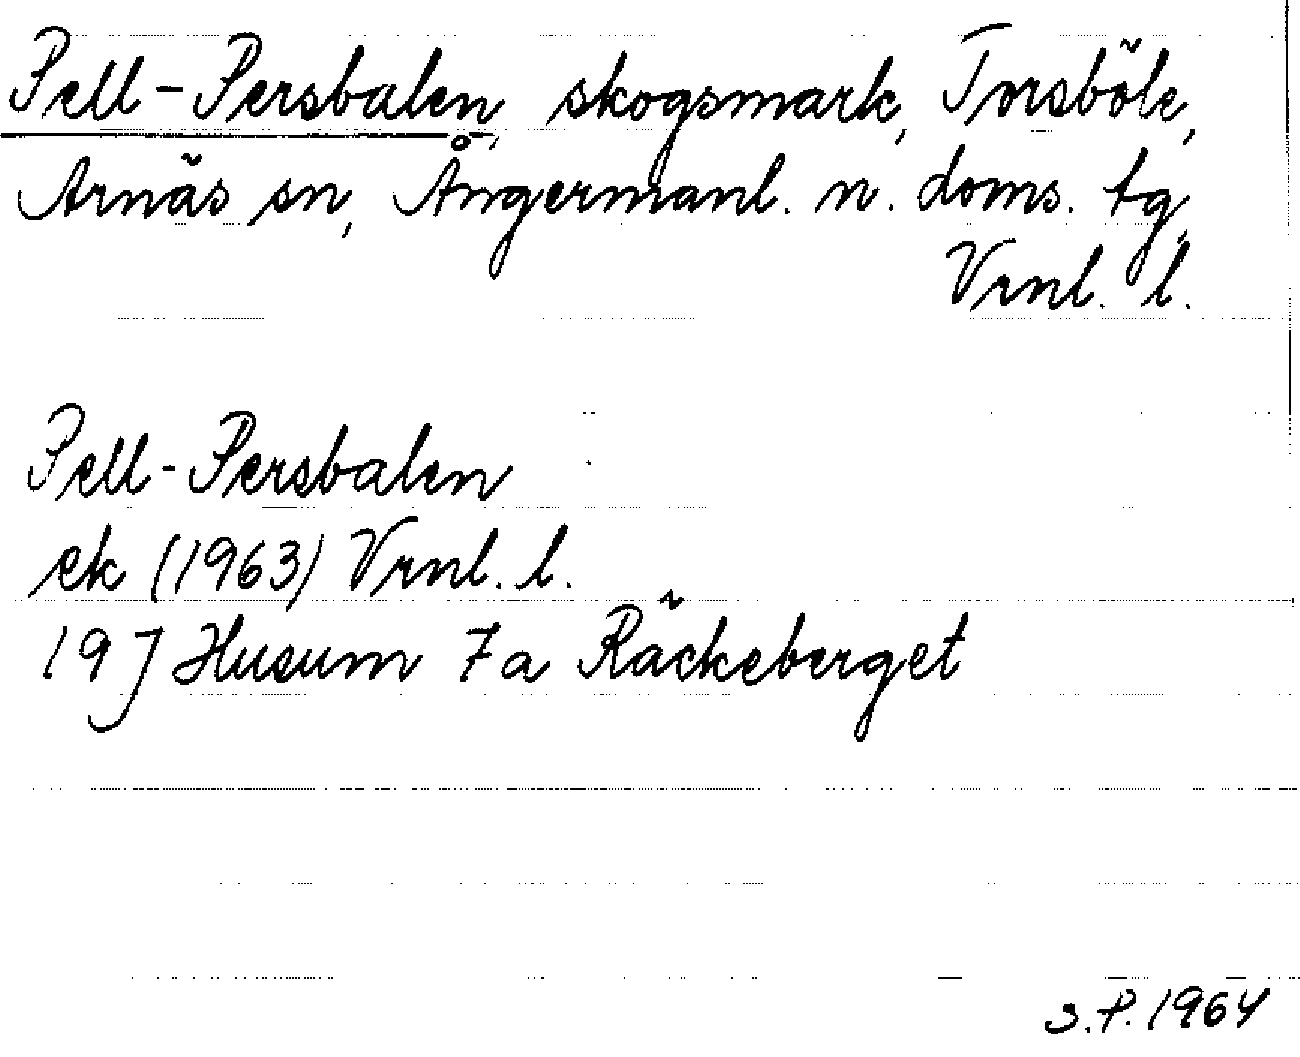 Pell-Persbalen, skogsmark, Torsböle,
Arnäs sn, Ångermanl. n. doms. tg,
Vrnl. l.
Pell-Persbalen
ek (1963) Vrnl. l.
19J Husum 7a Räckeberget
S.P. 1964